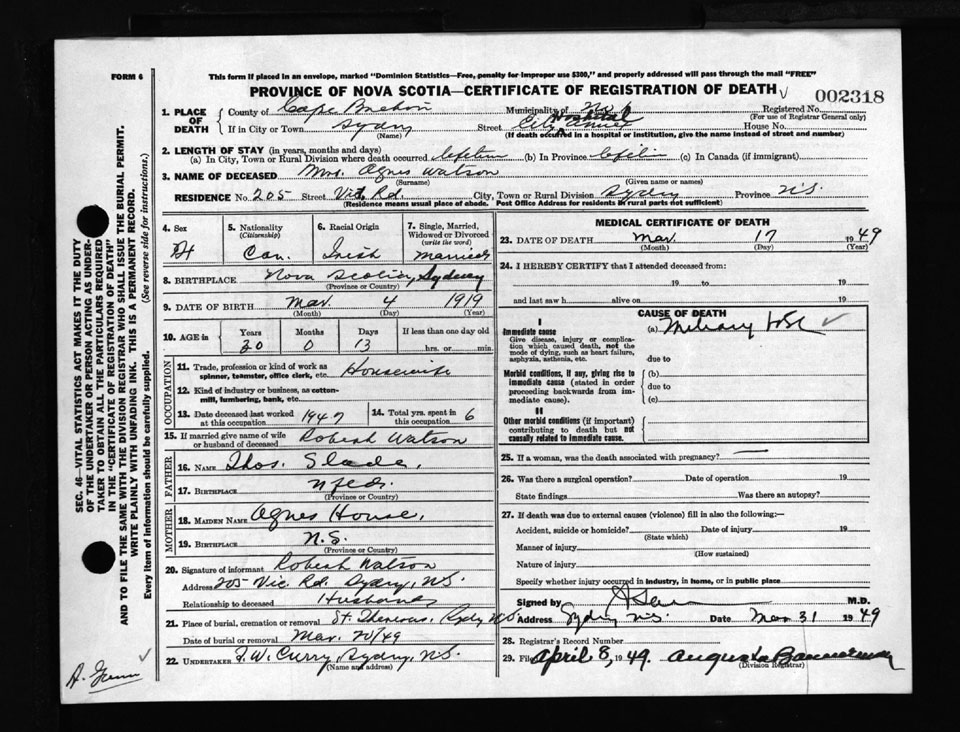 FORM 6
This form if placed in an envelope, marked "Dominion Statistics—Free, penalty for improper use $300," and properly addressed will pass through the mail "FREE"
PROVINCE OF NOVA SCOTIA—CERTIFICATE OF REGISTRATION OF DEATH
002318
1. PLACE OF DEATH
County of Cape Breton Municipality of Registered No.
(For use of Registrar General only)
If in City or Town Sydney Street City Hospital Annex House No.
(Name) (If death occurred in a hospital or institution, give the name instead of street and number)
2. LENGTH OF STAY (in years, months and days)
(a) In City, Town or Rural Division where death occurred lifetime (b) In Province (c) In Canada (if immigrant)
3. NAME OF DECEASED Mrs. Agnes Watson
(Surname) (Given name or names)
RESIDENCE No. 205 Street Vic. Rd. City, Town or Rural Division Sydney Province N.S.
(Residence means usual place of abode. Post Office Address for residents in rural parts not sufficient)
4. Sex
5. Nationality (Citizenship) Can.
6. Racial Origin Irish
7. Single, Married, Widowed or Divorced (write the word) Married
8. BIRTHPLACE Nova Scotia, Sydney
(Province or Country)
9. DATE OF BIRTH Mar. 4 1919
(Month) (Day) (Year)
10. AGE in Years Months Days If less than one day old
30 0 13 hrs. or min.
OCCUPATION
11. Trade, profession or kind of work as spinner, teamster, office clerk, etc. Housewife
12. Kind of industry or business, as cotton-mill, lumbering, bank, etc.
13. Date deceased last worked at this occupation 1947
14. Total yrs. spent in this occupation 6
15. If married give name of wife or husband of deceased Robert Watson
FATHER
16. NAME Thos. Slade.
17. BIRTHPLACE Nfld.
(Province or Country)
MOTHER
18. MAIDEN NAME Agnes House.
19. BIRTHPLACE N.S.
(Province or Country)
20. Signature of informant Robert Watson
Address 205 Vic. Rd. Sydney, N.S.
Relationship to deceased Husband
21. Place of burial, cremation or removal St. Sydney N.S.
Date of burial or removal Mar. 20/49
22. UNDERTAKER F.W. Curry, Sydney, N.S.
(Name and address)
MEDICAL CERTIFICATE OF DEATH
23. DATE OF DEATH Mar. 17 1949
(Month) (Day) (Year)
24. I HEREBY CERTIFY that I attended deceased from:
19 to 19
and last saw h alive on 19
CAUSE OF DEATH
I
Immediate cause
Give disease, injury or complication which caused death, not the mode of dying, such as heart failure, asphyxia, asthenia, etc.
(a) Miliary
due to
Morbid conditions, if any, giving rise to immediate cause (stated in order proceeding backwards from immediate cause).
(b)
due to
(c)
II
Other morbid conditions (if important) contributing to death but not causally related to immediate cause.
25. If a woman, was the death associated with pregnancy?
26. Was there a surgical operation? Date of operation 19
State findings Was there an autopsy?
27. If death was due to external causes (violence) fill in also the following:—
Accident, suicide or homicide? Date of injury 19
(State which)
Manner of injury
(How sustained)
Nature of injury
Specify whether injury occurred in industry, in home, or in public place
Signed by M.D.
Address Sydney N.S. Date Mar 31 1949
28. Registrar's Record Number
29. Filed April 8, 1949. Augusta Bannerman
(Division Registrar)
SEC. 46—VITAL STATISTICS ACT MAKES IT THE DUTY OF THE UNDERTAKER OR PERSON ACTING AS UNDERTAKER TO OBTAIN ALL THE PARTICULARS REQUIRED IN THE "CERTIFICATE OF REGISTRATION OF DEATH" AND TO FILE THE SAME WITH THE DIVISION REGISTRAR WHO SHALL ISSUE THE BURIAL PERMIT.
WRITE PLAINLY WITH UNFADING INK. THIS IS A PERMANENT RECORD.
Every item of information should be carefully supplied. (See reverse side for instructions.)